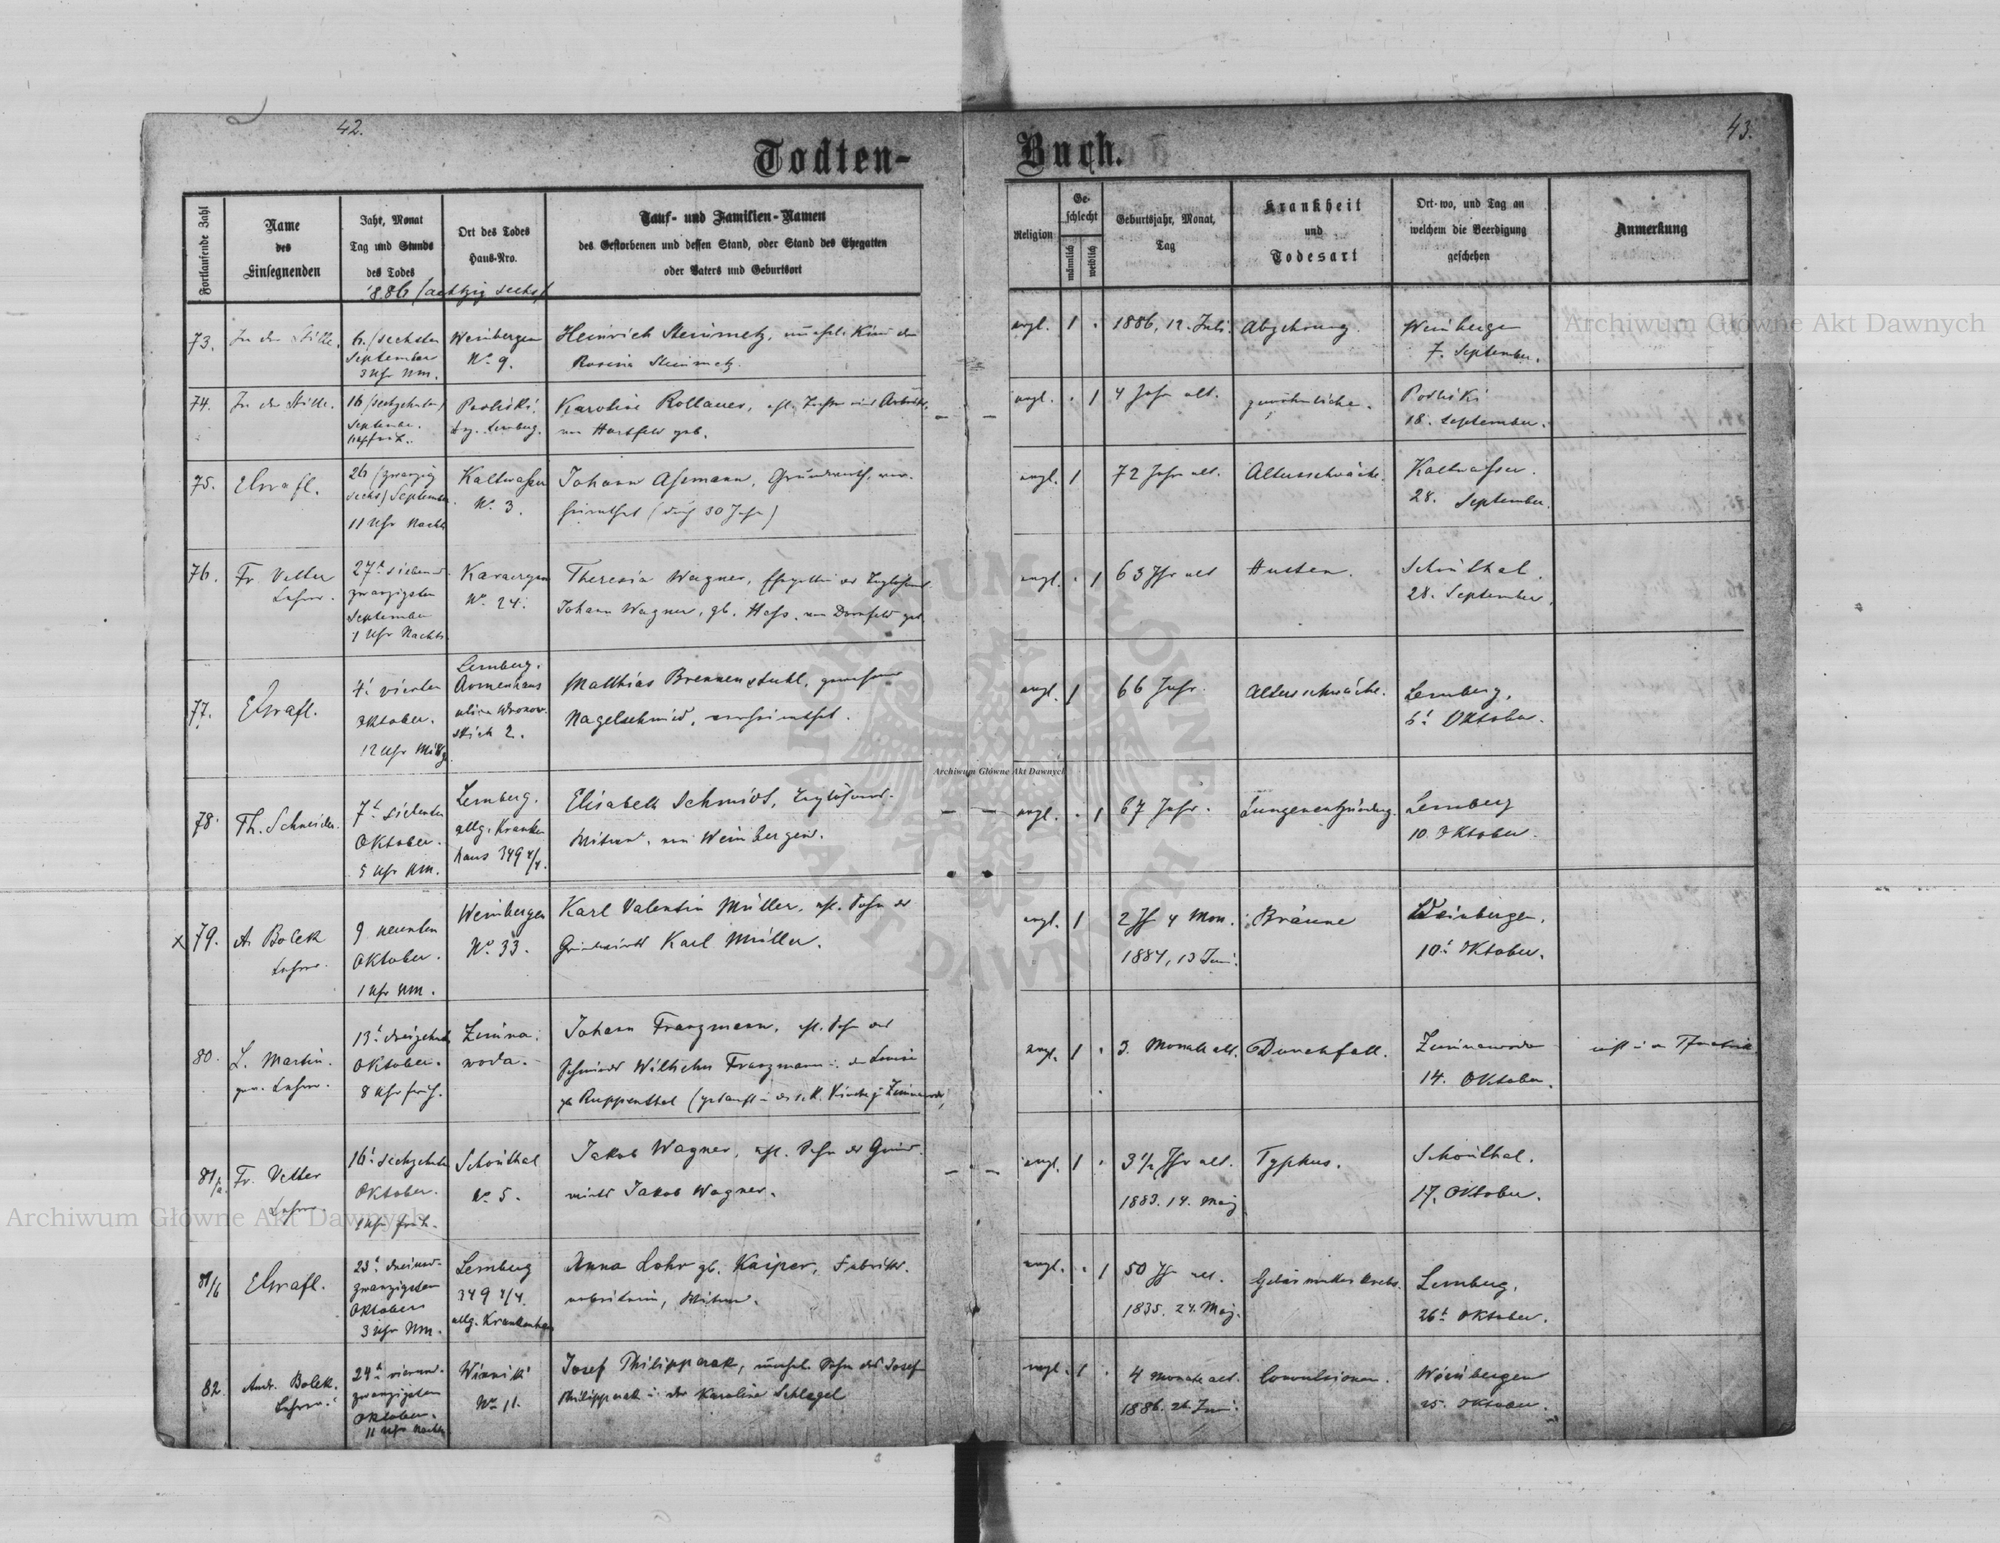 42.
43.
Todten-
Buch.
Fortlaufende Zahl
Name
des
Einsegnenden
Jahr, Monat
Tag und Stunde
des Todes
Ort des Todes
Haus-Nro.
Tauf- und Familien-Namen
des Gestorbenen und dessen Stand, oder Stand des Ehegatten
oder Vaters und Geburtsort
Religion
Ge-
schlecht
männlich
weiblich
Geburtsjahr, Monat,
Tag
Krankheit
und
Todesart
Ort wo, und Tag an
welchem die Beerdigung
geschehen
Anmerkung
1886 (achtzig sechs)
73.
In der Stille.
6. (sechsten
September
3 Uhr Nm.
Weinbergen
No. 9.
Heinrich Steinmetz, unehel. Kind der
Rosina Steinmetz.
evgl.
1
1886, 12. Juli.
Abzehrung.
Weinbergen
7. September.
74.
In der Stille.
16 (sechzehnten)
September.
Karoline Rollauer, ehl. Tochter
evgl.
1
4 Jahr alt.
gewöhnliche.
18. September.
75.
26 (zwanzig
sechs) September
11 Uhr Nachts
Kaltwasser
No. 3.
Johann Assmann, Grundwirth, ver-
heirathet (durch 30 Jahr)
evgl.
1
72 Jahr alt.
Altersschwäche.
Kaltwasser.
28. September.
76.
Fr. Vetter
Lehrer.
27t. sieben u
zwanzigsten
September
1 Uhr Nachts
No. 24.
Theresia Wagner, Ehegattin des Taglöhners
Johann Wagner, gb. Hass, von Dornfeld geb.
evgl.
1
63 Jhr alt
Husten.
Schönthal.
28. September.
77.
4t. vierten
Oktober.
12 Uhr Mittg.
Lemberg.
Armenhaus
2.
Matthias Brennenstuhl, gewesener
Nagelschmied, verheirathet.
evgl.
1
66 Jahr.
Altersschwäche.
Lemberg.
Oktober.
78.
Th. Schneider.
7t. siebenten
Oktober.
5 Uhr Nm.
Lemberg.
allg. Kranken
haus 349 4/4.
Elisabeth Schmidt, Taglöhners-
Witwe, von Weinbergen.
evgl.
1
67 Jahr.
Lungenentzündung.
Lemberg
10. Oktober.
x 79.
A. Bolek
Lehrer.
9 neunten
Oktober.
1 Uhr Nm.
Weinbergen
No. 33.
Karl Valentin Müller, ehl. Sohn des
Grundwirths Karl Müller.
evgl.
1
2 Jh 4 Mon.
1884, 13 Juni.
Bräune
Weinbergen.
10t. Oktober.
80.
L. Martin.
gew. Lehrer.
13t. dreizehnten
Oktober.
8 Uhr früh.
Zimna
woda.
Johann Franzmann, ehl. Sohn des
Schmieds Wilhelm Franzmann u. der Louise
Ruppenthal (getauft in der r. k. Kirche z. Zimnawoda)
evgl.
1
3. Monate alt.
Durchfall.
Zimnawoda
14. Oktober.
81/a
Fr. Vetter
Lehrer.
16t. sechzehnten
Oktober.
1 Uhr früh.
Schönthal
No 5.
Jakob Wagner, ehl. Sohn des Grund-
wirths Jakob Wagner.
evgl.
1
3 1/2 Jhr alt.
1883. 14. Maj
Typhus.
Schönthal.
17. Oktober.
81/b
23t. dreiund-
zwanzigsten
Oktober
3 Uhr Nm.
Lemberg
349 4/4.
allg. Krankenhaus
Anna Lohr gb. Kaiper, Fabriks-
arbeiterin, Witwe.
evgl.
1
50 Jhr alt.
1835. 24. Maj.
Gebärmutterkrebs.
Lemberg.
26t. Oktober.
82.
Andr. Bolek.
Lehrer.
24t. vierund-
zwanzigsten
Oktober.
11 Uhr Nachts
Winniki
No 11.
Josef Philippczak, unehel. Sohn des Josef
Philippczak u. der Karolina Schlagel
evgl.
1
4 Monate alt.
1886. 26. Juni.
Convulsionen.
Weinbergen
25. Oktober.
Archiwum Główne Akt Dawnych
Archiwum Główne Akt Dawnych
Archiwum Główne Akt Dawnych
ARCHIWUM GŁÓWNE AKT DAWNYCH